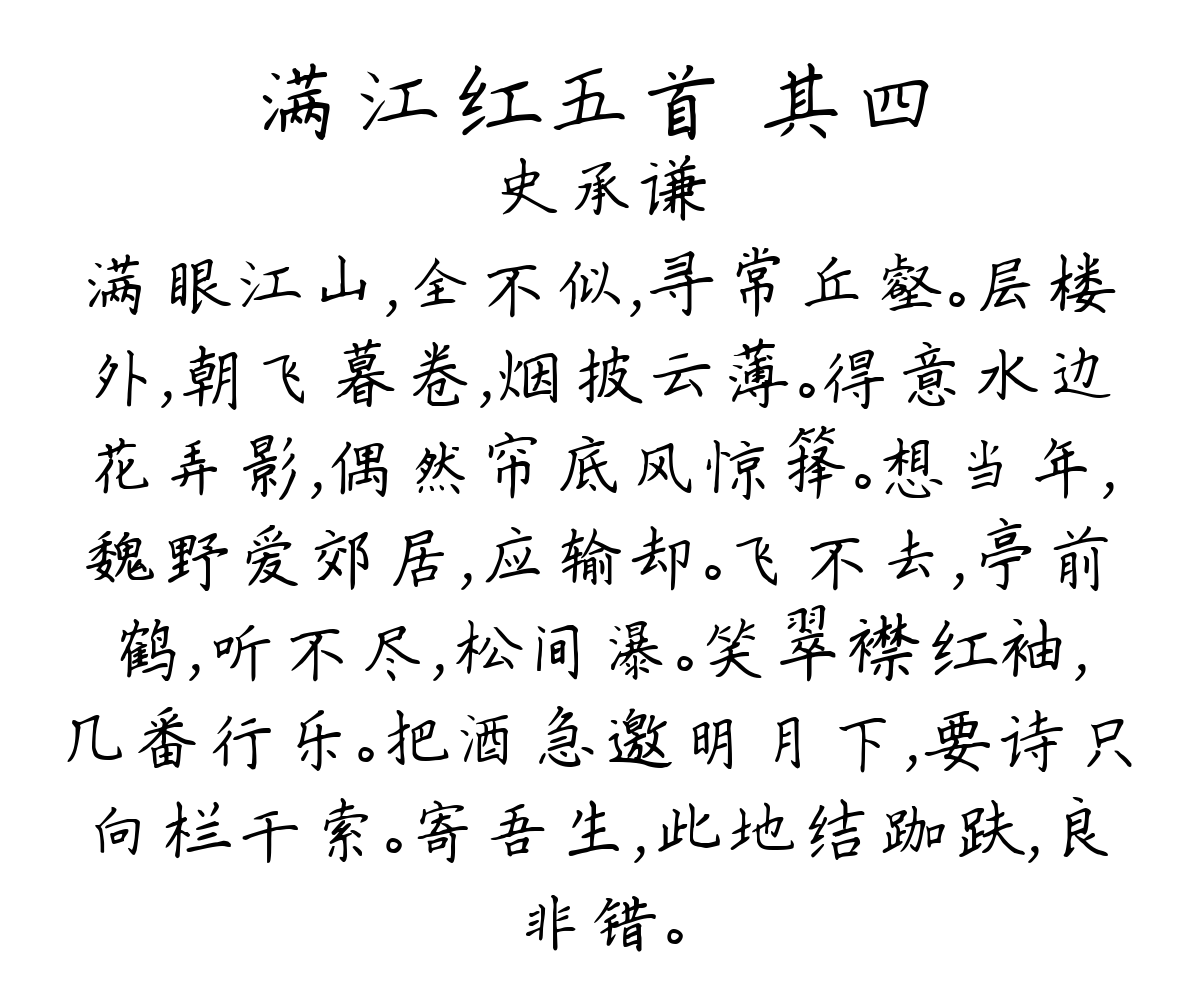 满江红五首 其四
史承谦
满眼江山,全不似,寻常丘壑。层楼
外,朝飞暮卷,烟披云薄。得意水边
花弄影,偶然帘底风惊箨。想当年,
魏野爱郊居,应输却。飞不去,亭前
鹤,听不尽,松间瀑。笑翠襟红袖,
几番行乐。把酒急邀明月下,要诗只
向栏干索。寄吾生,此地结跏趺,良
非错。